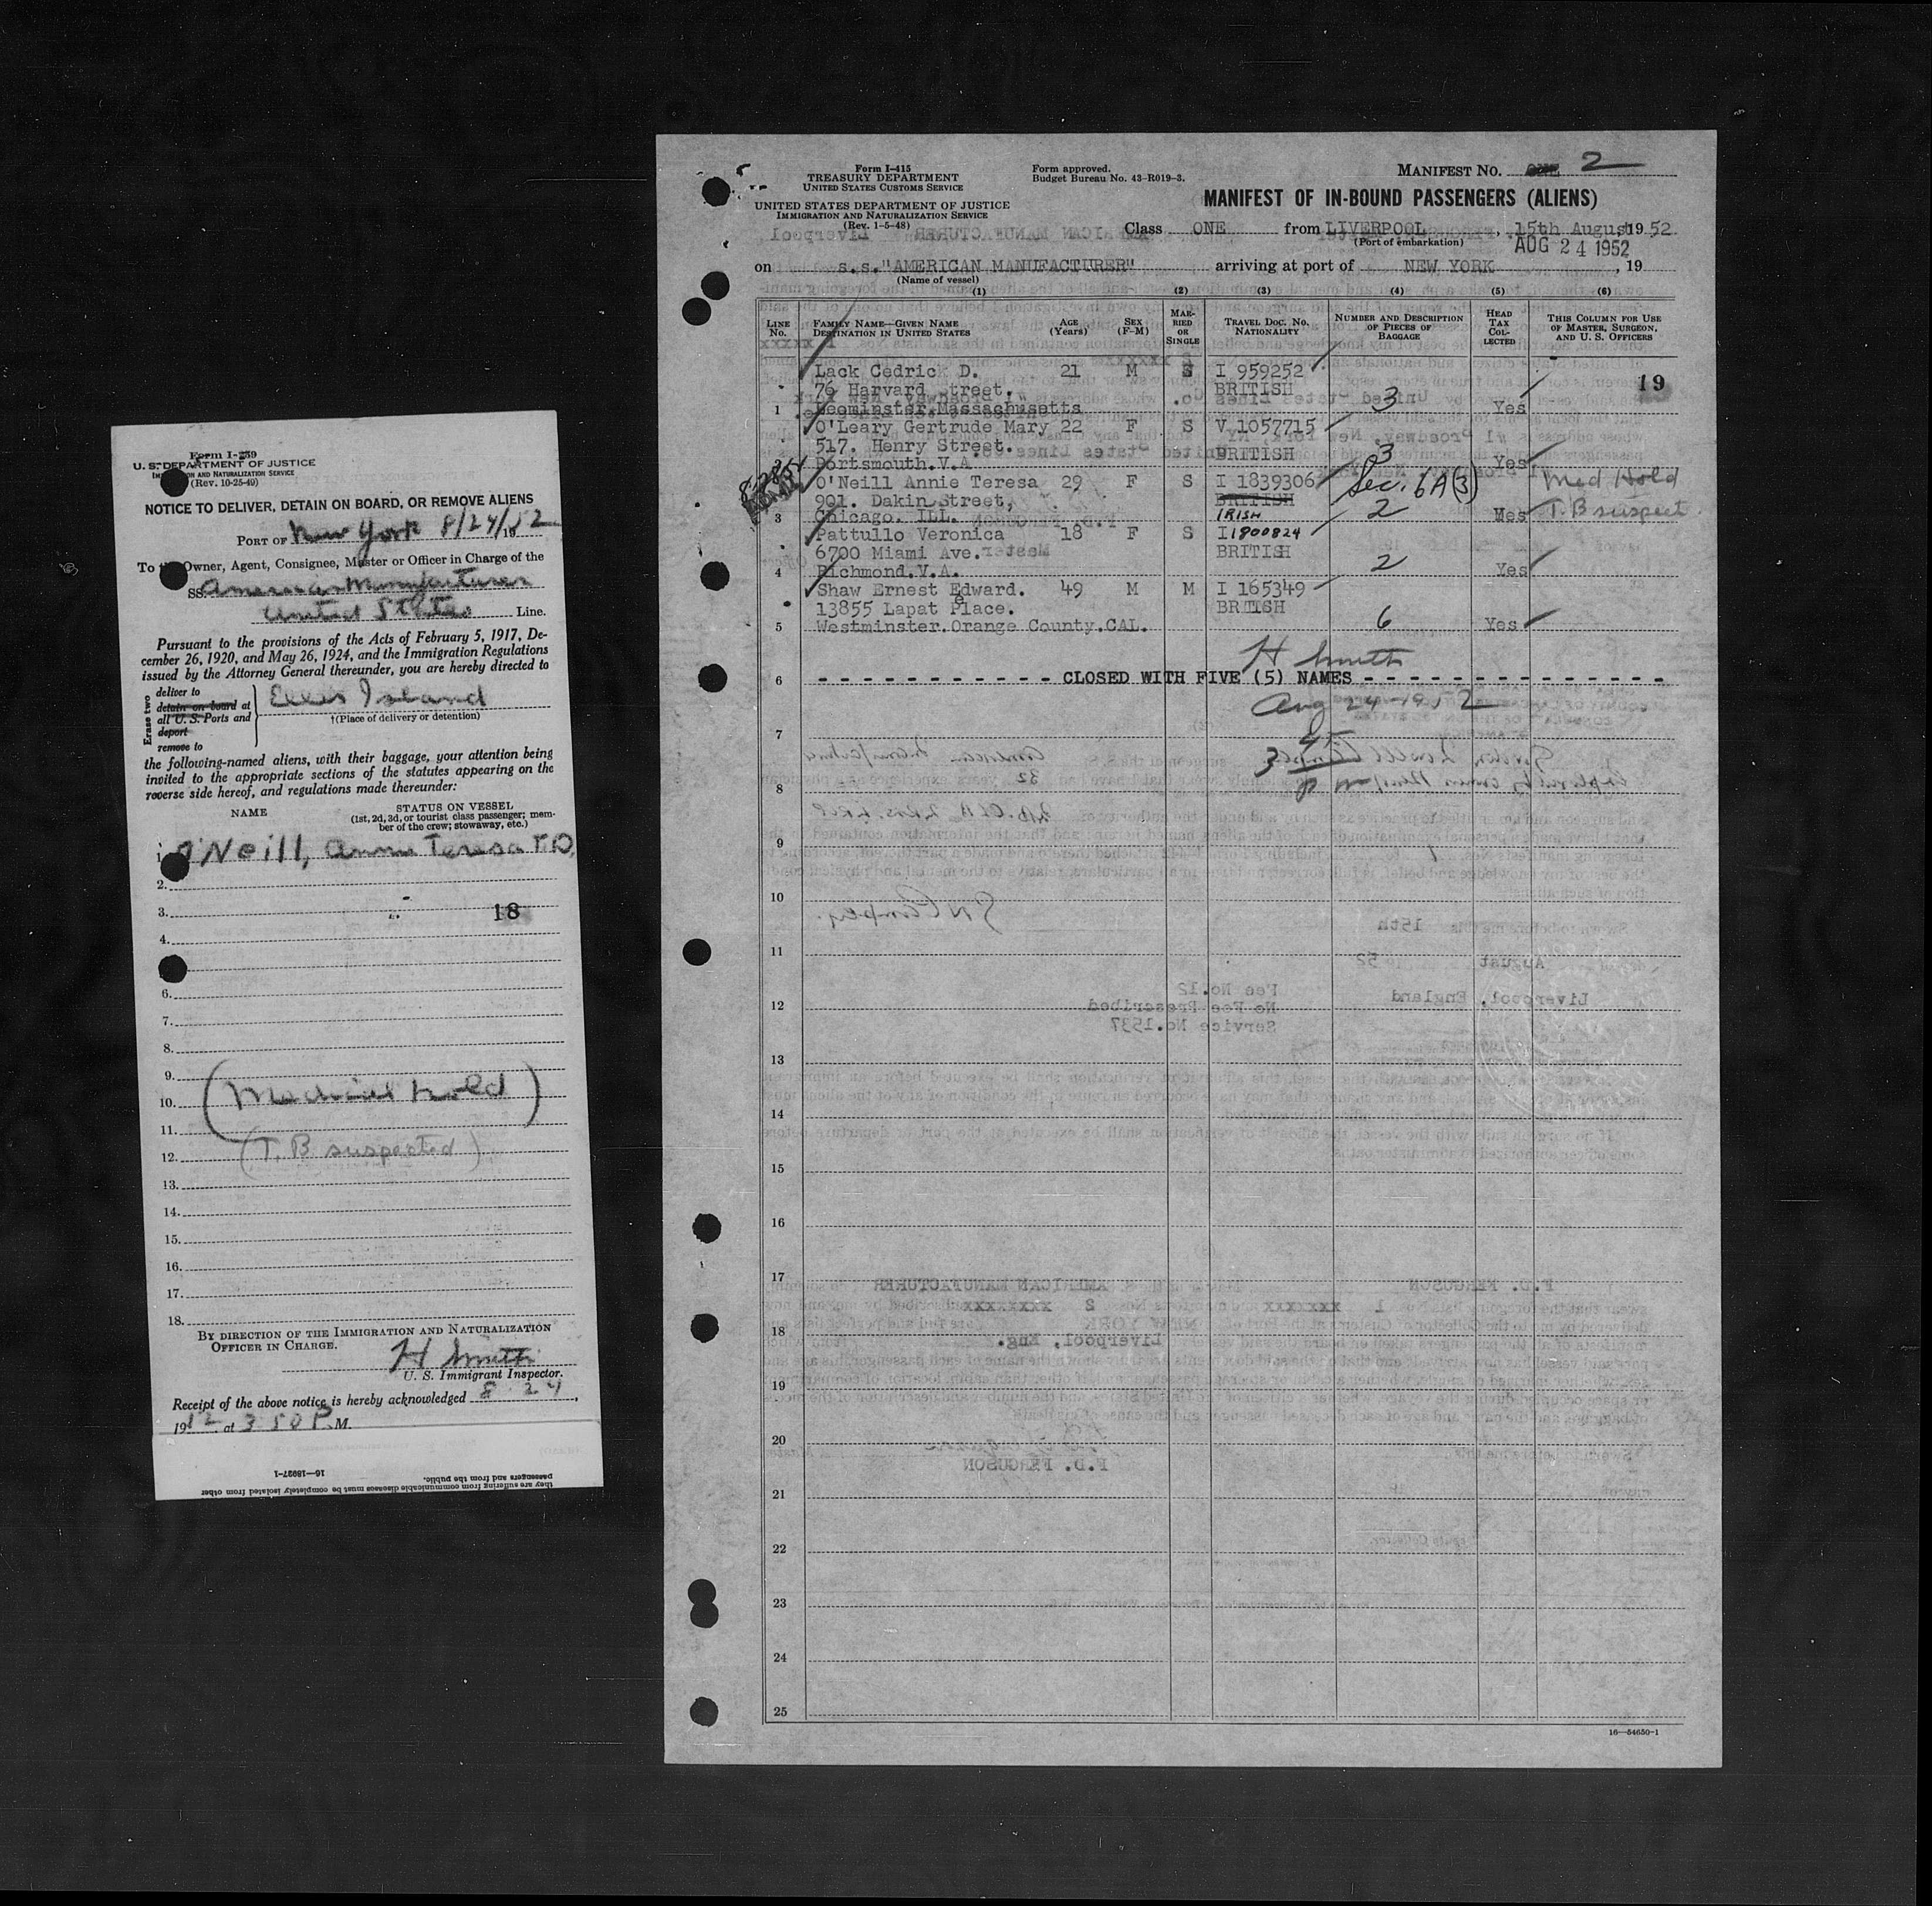 Form I-259
U. S. DEPARTMENT OF JUSTICE
IMMIGRATION AND NATURALIZATION SERVICE
(Rev. 10-25-49)
NOTICE TO DELIVER, DETAIN ON BOARD, OR REMOVE ALIENS
PORT OF New York 8/24/52 19
To the Owner, Agent, Consignee, Master or Officer in Charge of the
SS. American Manufacturer
United States Line.
Pursuant to the provisions of the Acts of February 5, 1917, De-
cember 26, 1920, and May 26, 1924, and the Immigration Regulations
issued by the Attorney General thereunder, you are hereby directed to
Erase two
deliver to
detain on board at
all U. S. Ports and
deport
remove to
Ellis Island
†(Place of delivery or detention)
the following-named aliens, with their baggage, your attention being
invited to the appropriate sections of the statutes appearing on the
reverse side hereof, and regulations made thereunder:
NAME
STATUS ON VESSEL
(1st, 2d, 3d, or tourist class passenger; mem-
ber of the crew; stowaway, etc.)
1. O'Neill, Annie Teresa
2.
3. 18
4.
6.
7.
8.
9.
10. (Medical hold)
11.
12. (T. B suspected)
13.
14.
15.
16.
17.
18.
BY DIRECTION OF THE IMMIGRATION AND NATURALIZATION
OFFICER IN CHARGE.
H Smith
U. S. Immigrant Inspector.
Receipt of the above notice is hereby acknowledged 8 24,
1952 at 3 50 P. M.
16—18027-1
they are suffering from communicable diseases must be completely isolated from other
passengers and from the public.
Form I-415
TREASURY DEPARTMENT
UNITED STATES CUSTOMS SERVICE
UNITED STATES DEPARTMENT OF JUSTICE
IMMIGRATION AND NATURALIZATION SERVICE
(Rev. 1-5-48)
Form approved.
Budget Bureau No. 43-R019-3.
MANIFEST NO. ONE 2
MANIFEST OF IN-BOUND PASSENGERS (ALIENS)
Class ONE from LIVERPOOL, 15th August 19 52
(Port of embarkation)
AUG 24 1952
on s.s."AMERICAN MANUFACTURER" arriving at port of NEW YORK, 19
(Name of vessel)
(1) (2) (3) (4) (5) (6)
LINE No.
FAMILY NAME—GIVEN NAME
DESTINATION IN UNITED STATES
AGE (Years)
SEX (F-M)
MAR-RIED OR SINGLE
TRAVEL DOC. NO. NATIONALITY
NUMBER AND DESCRIPTION OF PIECES OF BAGGAGE
HEAD TAX COL-LECTED
THIS COLUMN FOR USE OF MASTER, SURGEON, AND U. S. OFFICERS
Lack Cedric D. 21 M S I 959252
76 Harvard Street. BRITISH 19
1 Leominster.Massachusetts 3 Yes
O'Leary Gertrude Mary 22 F S V 1057715
517. Henry Street. BRITISH
2 Portsmouth.V.A 3 Yes
8-28-52
O'Neill Annie Teresa 29 F S I 1839306 Sec. 6A(3) Med Hold
901. Dakin Street, BRITISH
3 Chicago. ILL. IRISH 2 Yes T.B suspect
Pattullo Veronica 18 F S I1800824
6700 Miami Ave. BRITISH
4 Richmond.V.A. 2 Yes
Shaw Ernest Edward. 49 M M I 165349
13855 Lapat Place. BRITISH
5 Westminster.Orange County.CAL. 6 Yes
H Smith
6 - - - CLOSED WITH FIVE (5) NAMES - - -
Aug 24-1952
7
8
9
10
11
12
13
14
15
16
17
18
19
20
21
22
23
24
25
16—54650-1